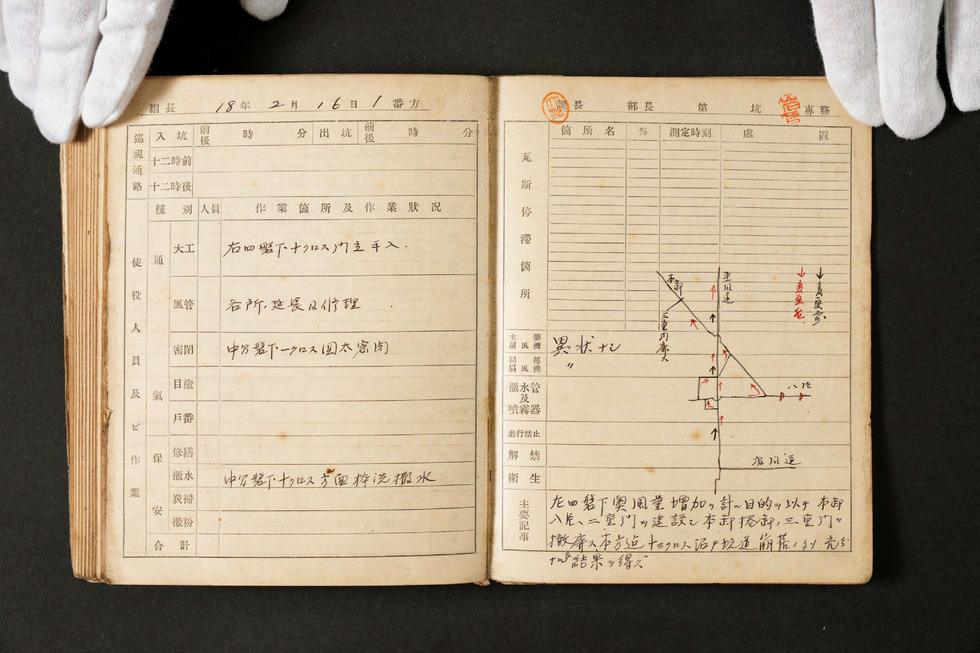 副長 18年2月16日1番方
巡視通路 入坑 前後 時 分 出坑 前後 時 分
十二時前
十二時後
使役人員及ビ作業
種別 人員 作業箇所及作業狀況
通氣
大工 右四盤下十クロス門立手入.
風管 各所,延長及修理
密閉 中分盤下一クロス囲太密閉
目塗
戸番
保安
修繕
撒水 中分盤下十クロス方面枠洗撒水
炭掃
撒粉
合計
副長 部長 第 坑 專務
瓦斯停滯箇所
箇所名 % 測定時刻 處置
主要扇風機 異状ナシ
局部扇風機 〃
撒水管及噴霧器
進行禁止
解禁
衛生
本卸
三重門廃ス
↓変更前
↓変更後
八片
主要記事
左四盤下奧風量増加ヲ計ル目的ヲ以テ本卸
八片ヘ二重門ヲ建設シ本卸捲卸,三重門ヲ
撤廃ス本方迄十一クロス沿戸坑道崩落ノタメ充分
ナル結果ヲ得ズ